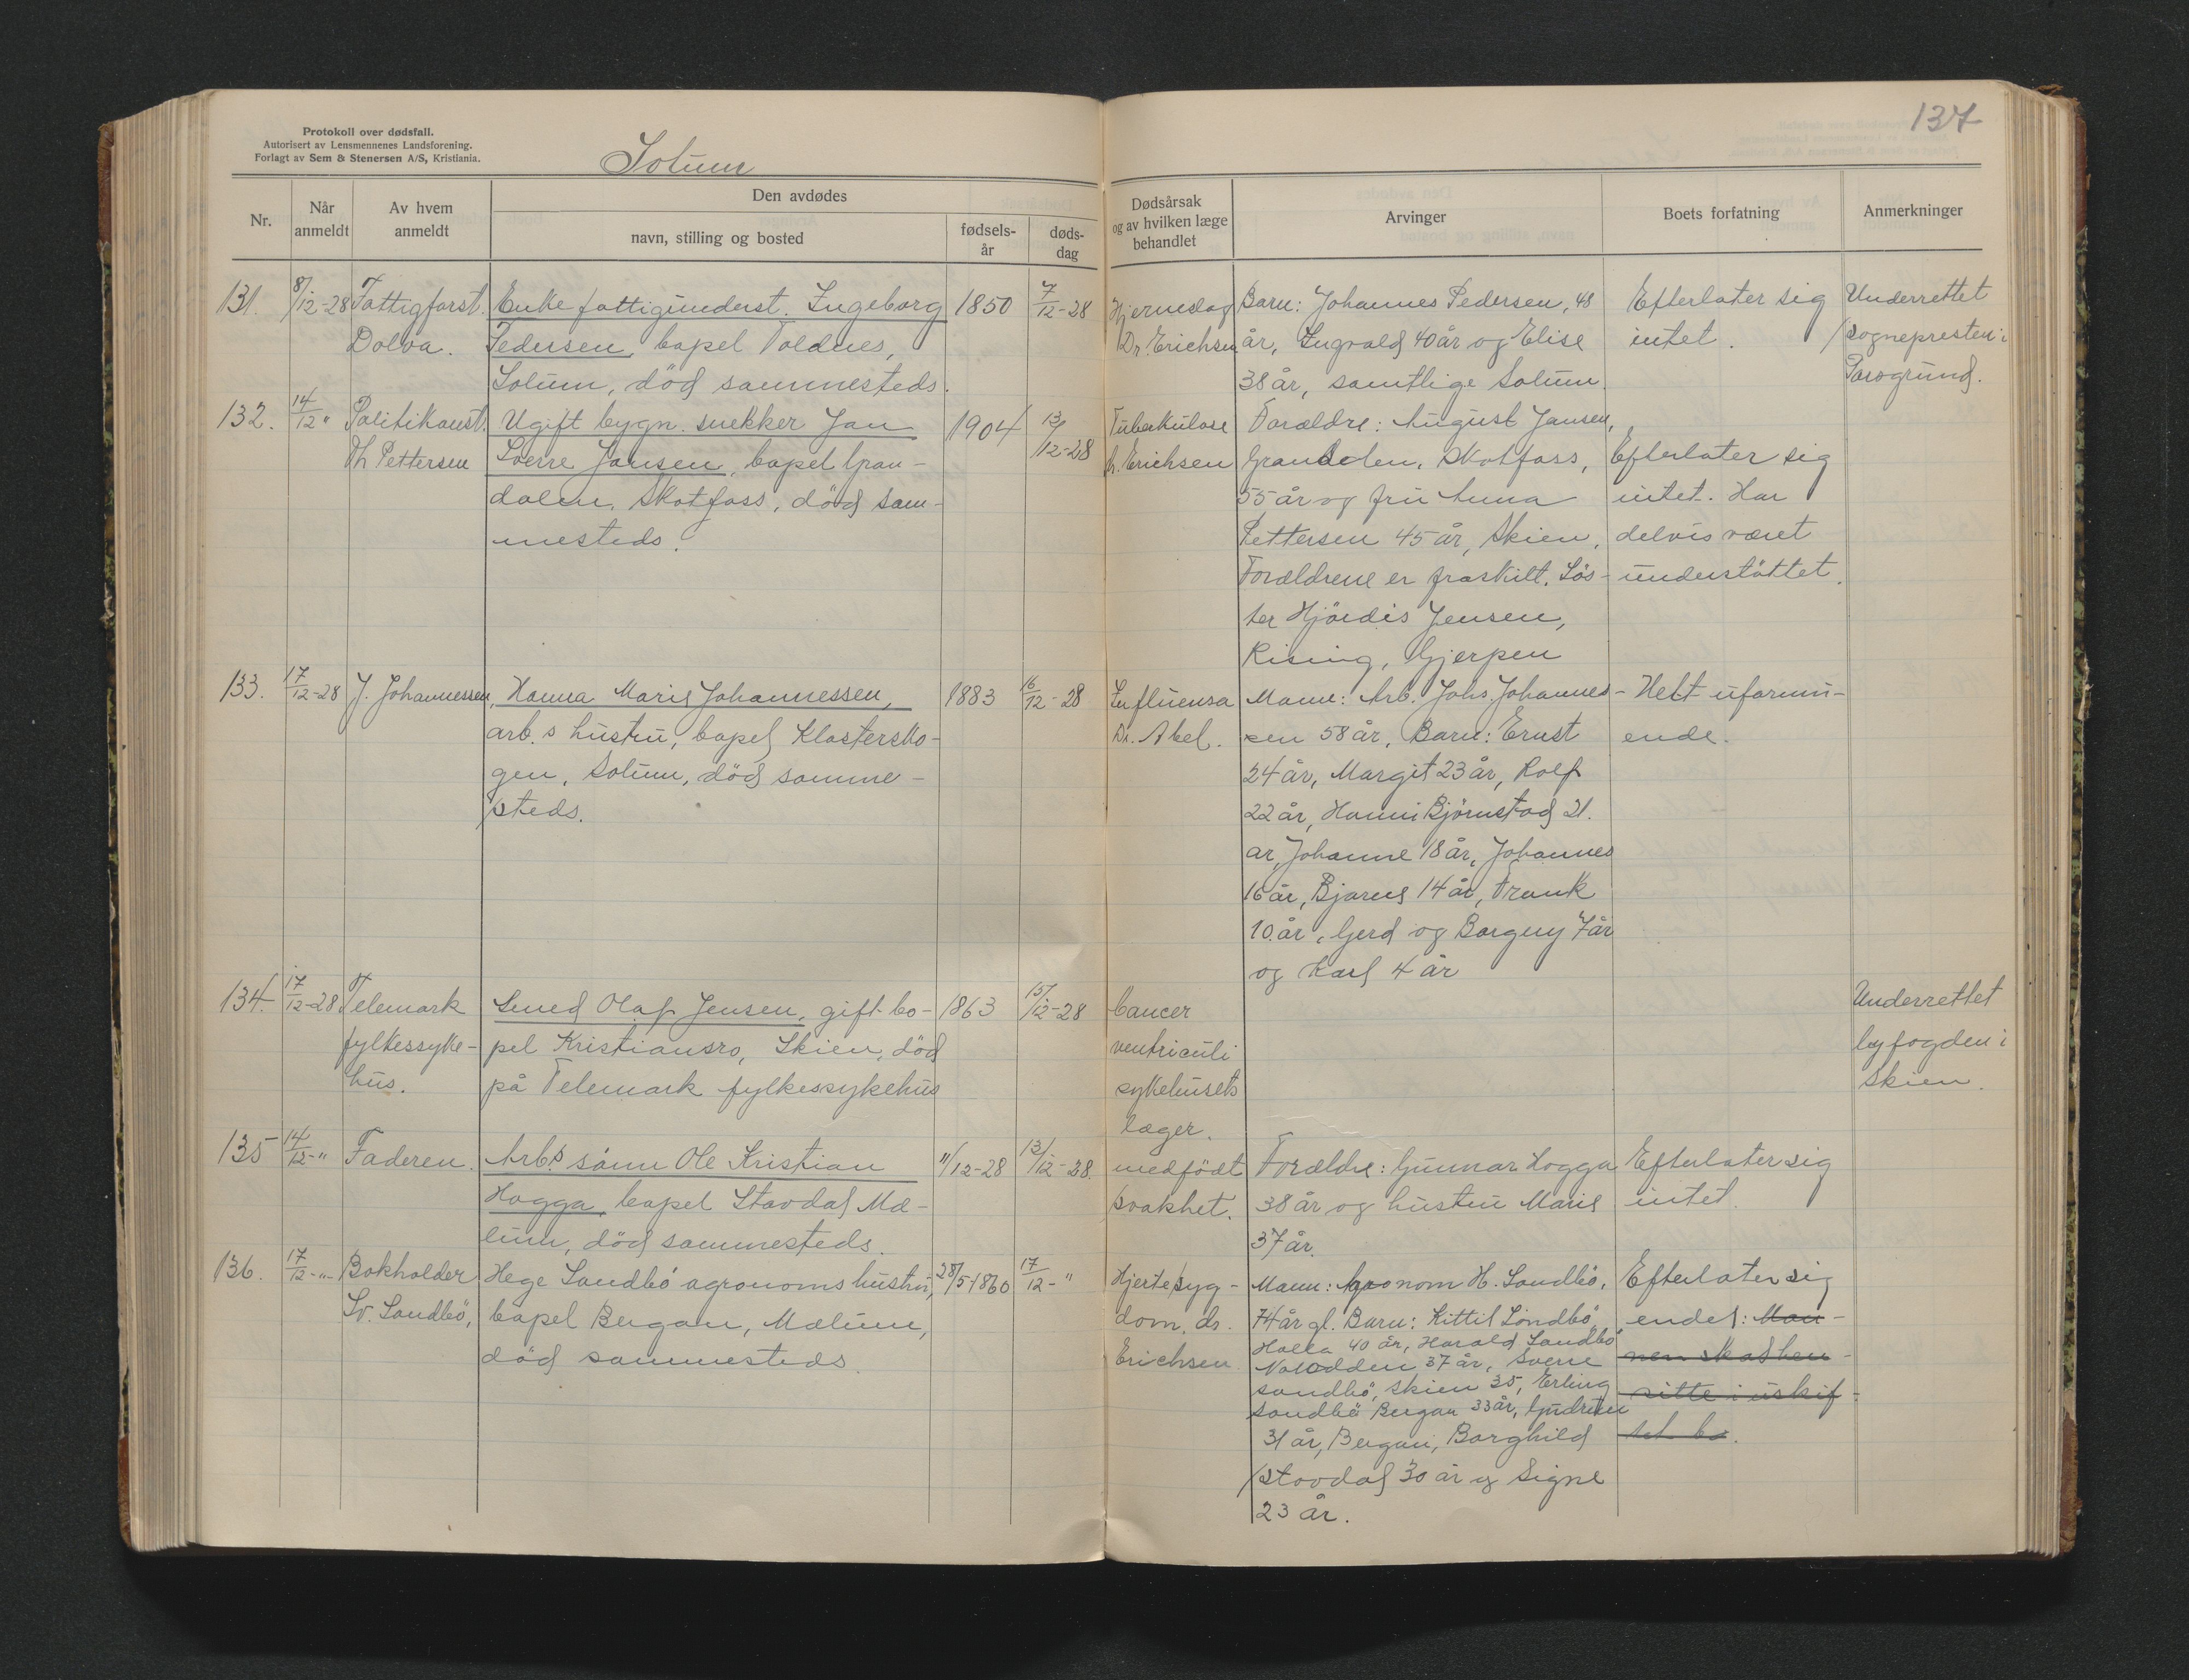 137
Protokoll over dødsfall.
Autorisert av Lensmennenes Landsforening.
Forlagt av Sem & Stenersen A/S, Kristiania.
Solum
Nr.
Når
anmeldt
Av hvem
anmeldt
Den avdødes
navn, stilling og bosted
fødsels-
år
døds-
dag
Dødsårsak
og av hvilken læge
behandlet
Arvinger
Boets forfatning
Anmerkninger
131. 8/12-28 Fattigforst. Enke fattigunderst. Ingeborg 1850 7/12-28 Hjerneslag Barn: Johannes Pedersen, 48 Efterlater sig Underrettet
Dolva. Pedersen, bopel Voldnes, Dr Erichsen år, Ingvald 40 år og Elise intet. sognepresten i
Solum, död sammesteds. 38 år, samtlige Solum. Porsgrund.
132. 14/12 " Politikonst. Ugift bygn. snekker Jan 1904 13/12-28 Tuberkulose Foreldre: August Jansen,
Th Pettersen Sverre Jansen, bopel Gran- Erichsen Grandalen, Skotfoss, Efterlater sig
dalen, Skotfoss, död sam- 55 år og fru Anna intet. Har
mesteds. Pettersen 45 år, Skien, delvis været
Forældrene er fraskilt. Sös- understöttet.
ter Hjördis Jensen,
Rising, Gjerpen
133. 17/12-28 J. Johannessen, Hanna Marie Johannessen, 1883 16/12-28 Influensa Mann: Arb. Johs. Johannes- Helt uformu-
arb.s hustru, bopel Klostersko- Dr. Abel. sen 58 år, Barn: Ernst ende.
gen, Solum, död samme- 24 år, Margit 23 år, Rolf
steds. 22 år, Hanni Björnstad 21.
år, Johanne 18 år, Johannes
16 år, Bjarne 14 år, Frank
10 år, Gerd og Borgny 7 år
og Karl 4 år
134. 17/12-28 Telemark Smed Olaf Jensen, gift bo- 1863 15/12-28 Cancer Underrettet
fylkessyke- pel Kristiansro, Skien, död ventriculi byfogden i
hus. på Telemark fylkessykehus sykehusets Skien.
læger.
135 14/12-" Faderen. Arb.s sönn Ole Kristian 11/12-28 13/12-28. medfödt Forældre: Gunnar Hogga Efterlater sig
Hogga, bopel Stavdal Mæ- svakhet. 38 år og hustru Marie intet.
lum, död sammesteds. 37 år.
136. 17/12-"- Bokholder Hege Sandbö agronoms hustru, 28/5-1860 17/12-" Hjertesyg- Mann: Agronom H. Sandbö, Efterlater sig
Sv. Sandbö, bopel Bergan, Mælum, dom, dr. 74 år gl. Barn: Kittil Sandbö, endel: Man-
död sammesteds. Erichsen Holla 40 år, Harald Sandbö
Notodden 37 år, Sverre nen skal hen-
Sandbö, Skien 35, Erling sitte i uskif-
Sandbö Bergan 33 år, Gudrun
31 år, Bergan, Borghild tet bo.
Stavdal 30 år og Signe
23 år.